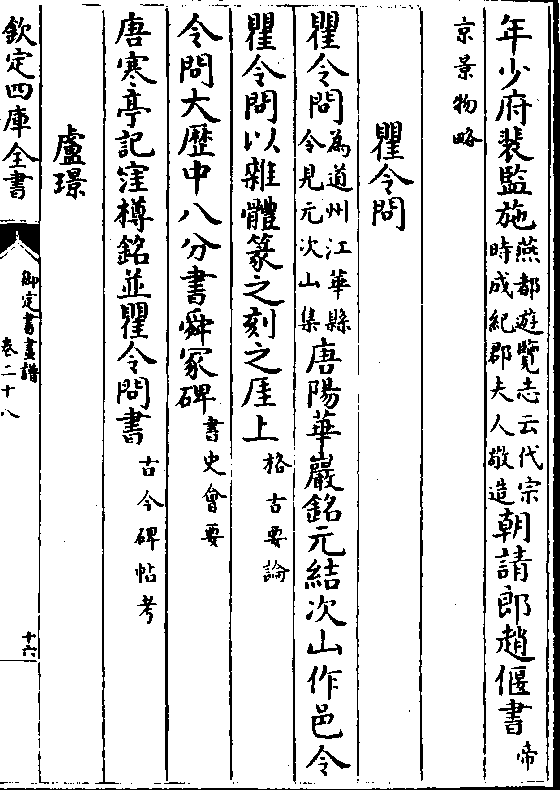 年少府裴監施燕都遊覽志云代宗時成紀郡夫人敬造朝請郎趙偃書帝
京景物略
瞿令問
瞿令問為道州江華縣令見元次山集唐陽華巖銘元結次山作邑令
瞿令問以雜體篆之刻之厓上格古要論
令問大歷中八分書舜冢碑書史會要
唐寒亭記窪樽銘並瞿令問書古今碑帖考
盧璟
欽定四庫全書
御定書畫譜
卷二十八
十六